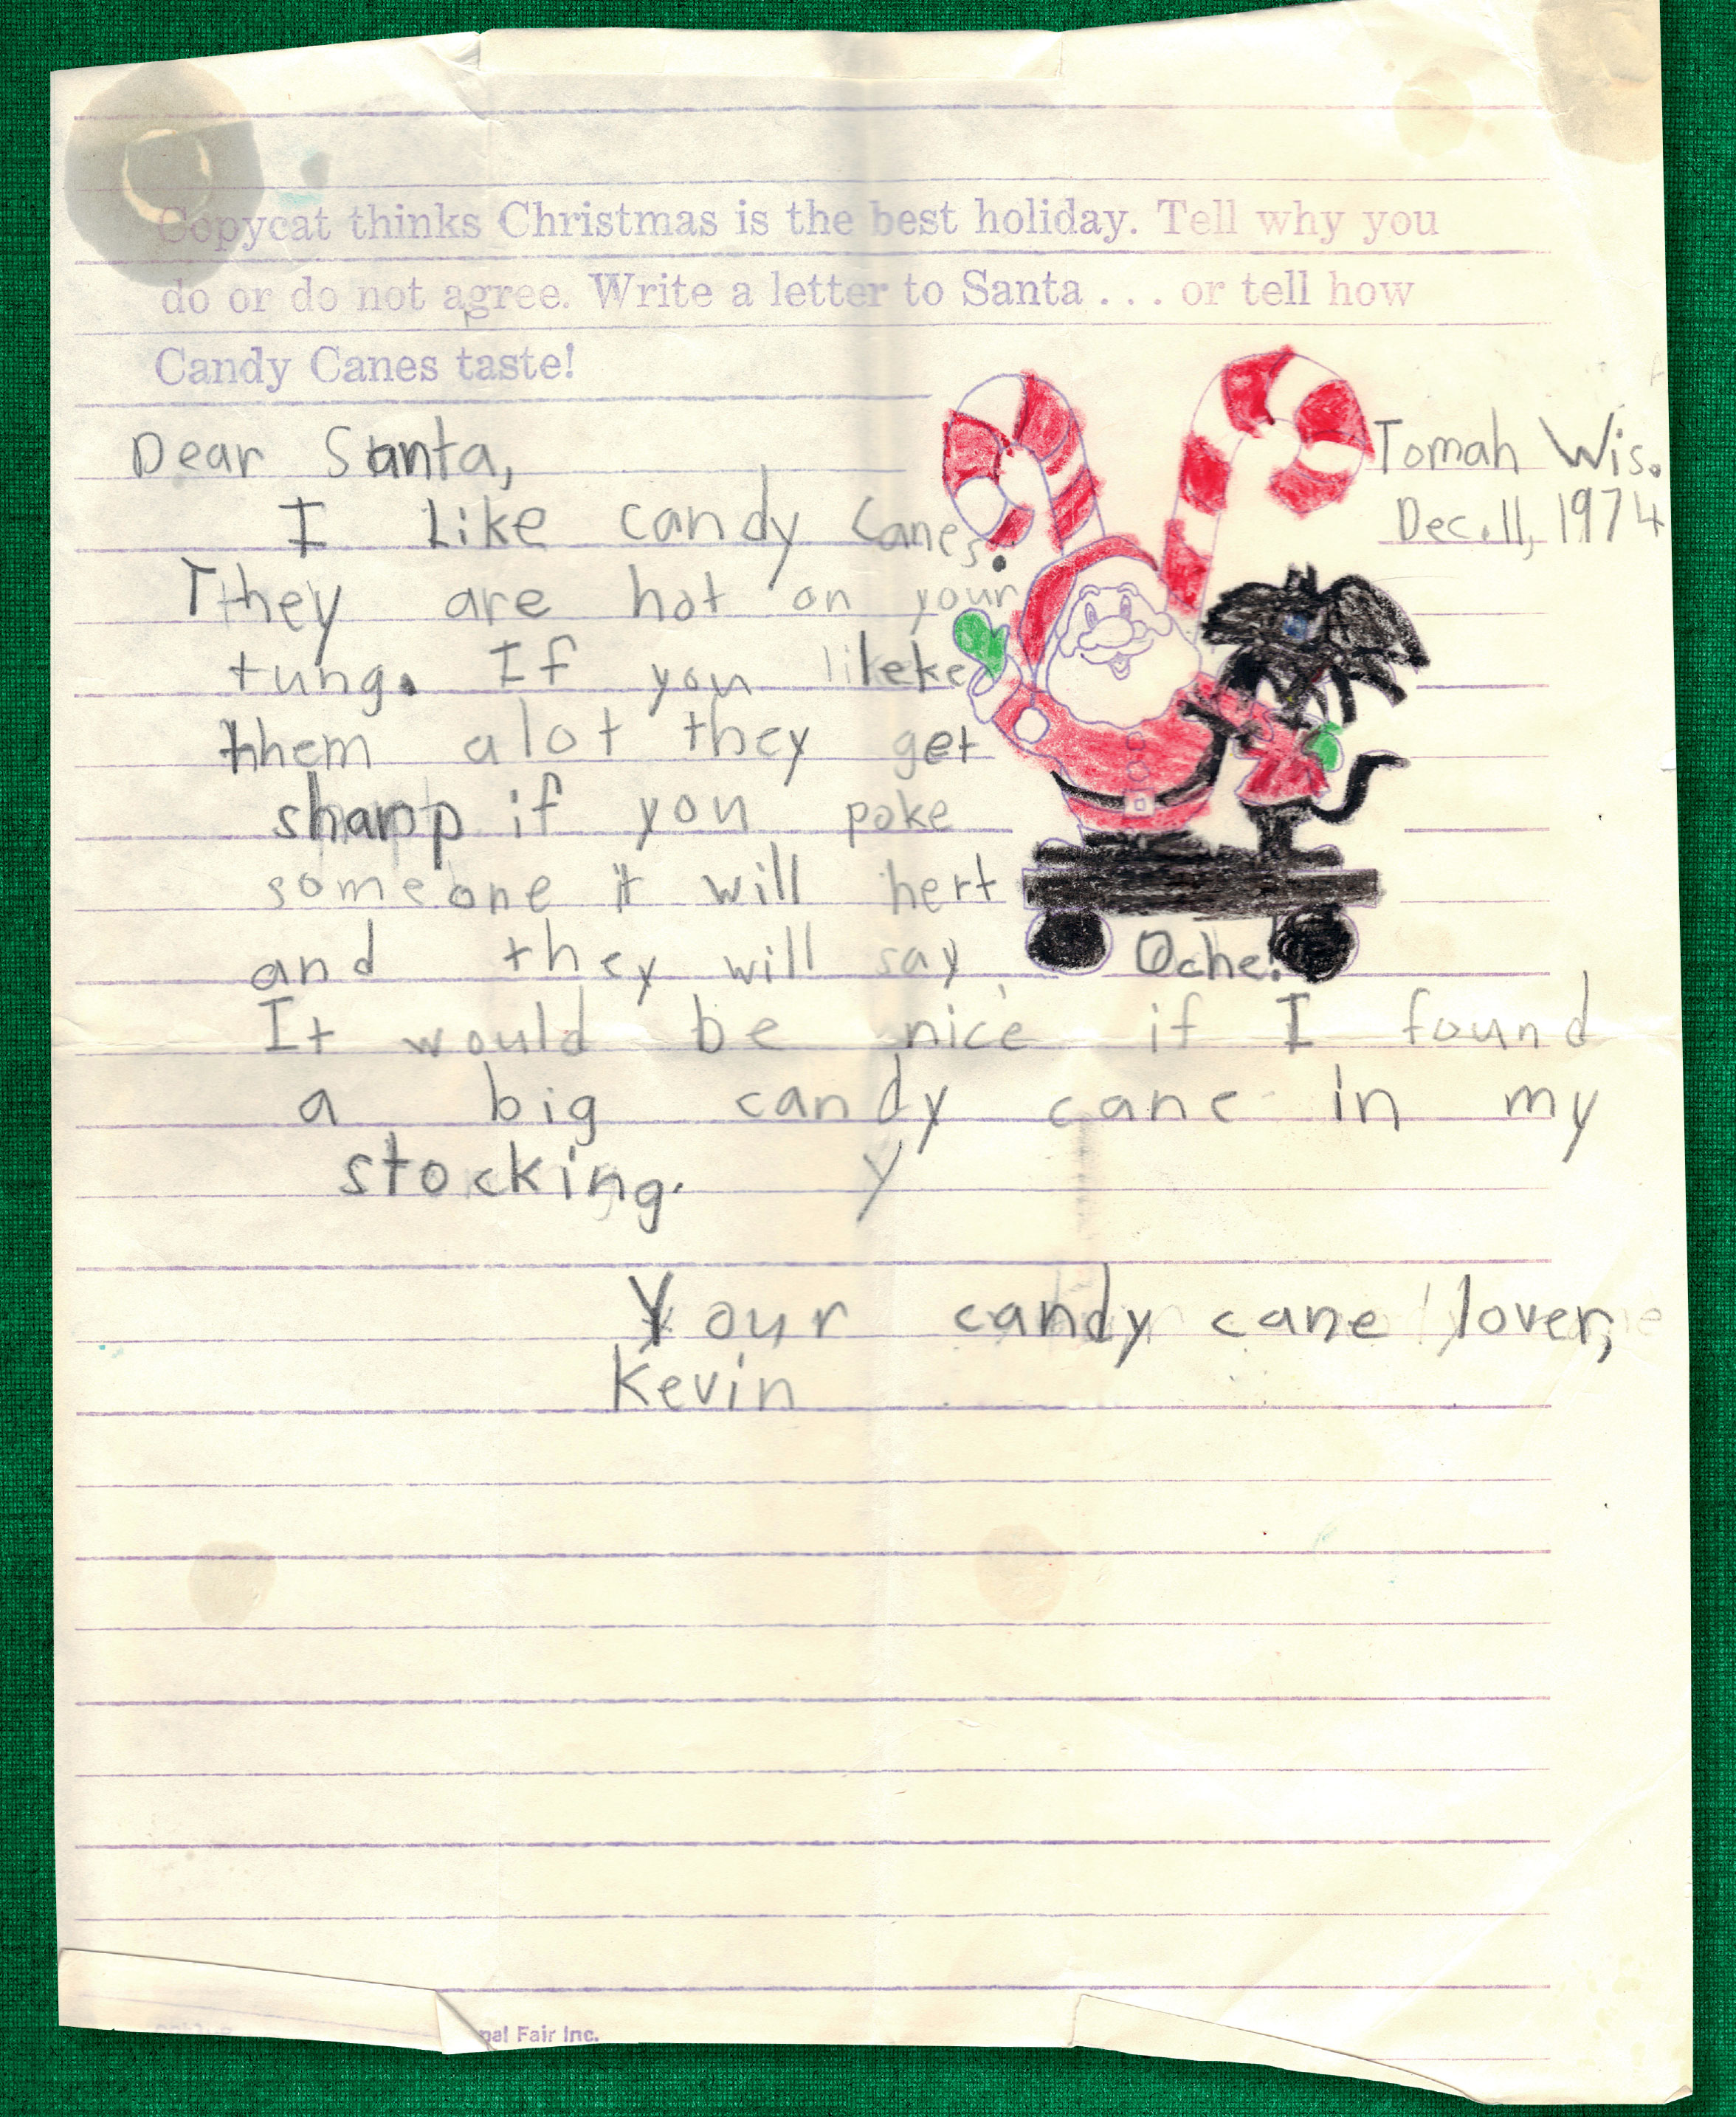 Copycat thinks Christmas is the best holiday. Tell why you
do or do not agree. Write a letter to Santa . . . or tell how
Candy Canes taste!
Tomah Wis.
Dec. 11, 1974
Dear Santa,
I Like candy Canes.
They are hot on your
tung. If you likeke
them alot they get
sharp if you poke
someone it will hert
and they will say Oche!
It would be nice if I found
a big candy cane in my
stocking. y
Your candy cane lover,
Kevin
nal Fair Inc.